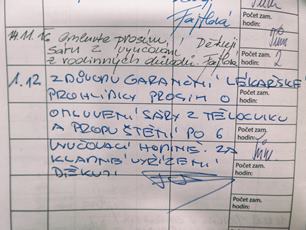 Fajtlová
Počet zam.
hodin:
11.11. Omluvte prosím,
Sáru z vyučování
z rodinných důvodů. Děkuji
Fajtlová
Počet zam.
hodin:
2
1.12. Z DŮVODU GARANČNÍ LÉKAŘSKÉ
PROHLÍDKY PROSÍM O
OMLUVENÍ SÁRY Z TĚLOCVIKU
A PROPUŠTĚNÍ PO 6
VYUČOVACÍ HODINĚ. ZA
KLADNÉ VYŘÍZENÍ
DĚKUJI
Počet zam.
hodin:
Počet zam.
hodin:
Počet zam.
hodin:
Počet zam.
hodin: